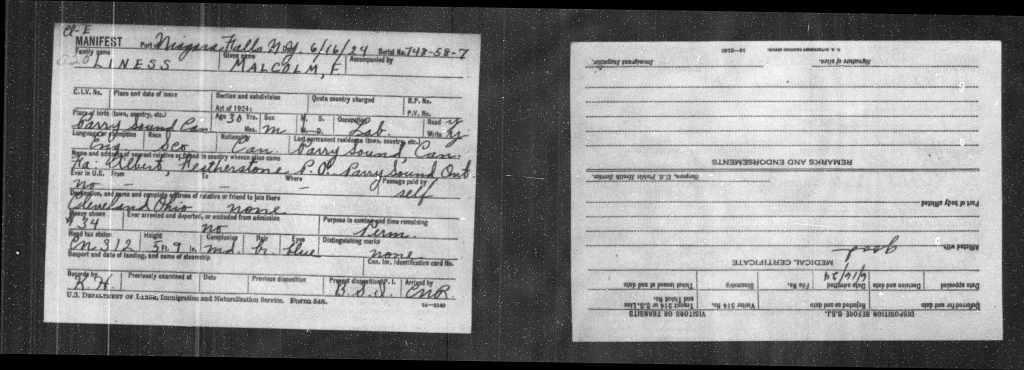 Cl-E
MANIFEST Port Niagara Falls N.Y. 6/16/24 Serial No. 748-58-7
Family name Given name Accompanied by
LINESS MALCOLM, F.
C.I.V. No. Place and date of issue Section and subdivision Quota country charged R.P. No.
Act of 1924: P.V. No.
Place of birth (town, country, etc.) Age 30 Yrs. Sex M. S. Occupation Read y
Parry Sound Can Mos. m W. D. Lab. Write y
Language or exemption Race Nationality Last permanent residence (town, country, etc.)
Eng Sco Can. Parry Sound, Can.
Name and address of nearest relative or friend in country whence alien came
Fa: Gilbert, Featherstone P.O. Parry Sound Ont.
Ever in U.S. From To Where Passage paid by
no – – – self
Destination, and name and complete address of relative or friend to join there
Cleveland Ohio none
Money shown Ever arrested and deported, or excluded from admission Purpose in coming and time remaining
$ 34 no Perm.
Head tax status Height Complexion Hair Eyes Distinguishing marks
5 ft. 9 in. md. br. blue none
Seaport and date of landing, and name of steamship Can. Im. Identification card No.
Records by Previously examined at Date Previous disposition Present disposition P.I. Arrived by
B.S.I.
U.S. DEPARTMENT OF LABOR, Immigration and Naturalization Service. FORM 548.
DISPOSITION BEFORE B.S.I. VISITORS OR TRANSITS
Deferred for date Rejected on and date Visitor 514 No. Transit 514 or S.S. Line and Ticket No.
Date appealed Decision and date Date admitted File No. Discovery Ticket issued at and date
6/16/24
MEDICAL CERTIFICATE
Afflicted with good
Part of body affected
Surgeon, U.S. Public Health Service.
REMARKS AND ENDORSEMENTS
Signature of alien. Immigrant Inspector.